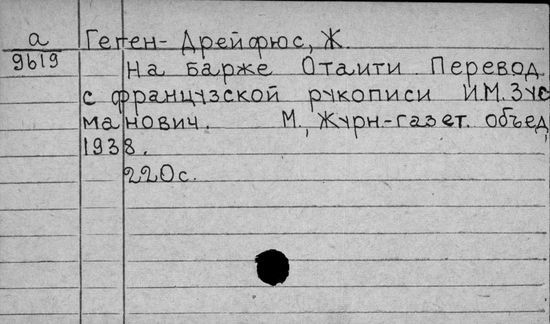 а Геген-Дрейфюс, Ж.
9619
На барже Отаити Перевод
с французской рукописи И.М. Зус
манович. М, Журн-газет. объед
1938.
220с.